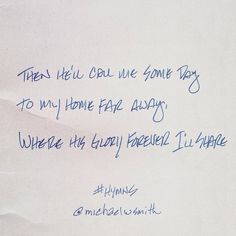 THEN HE'LL CALL ME SOME DAY
TO MY HOME FAR AWAY.
WHERE HIS GLORY FOREVER I'LL SHARE
#HYMNS
@michaelwsmith